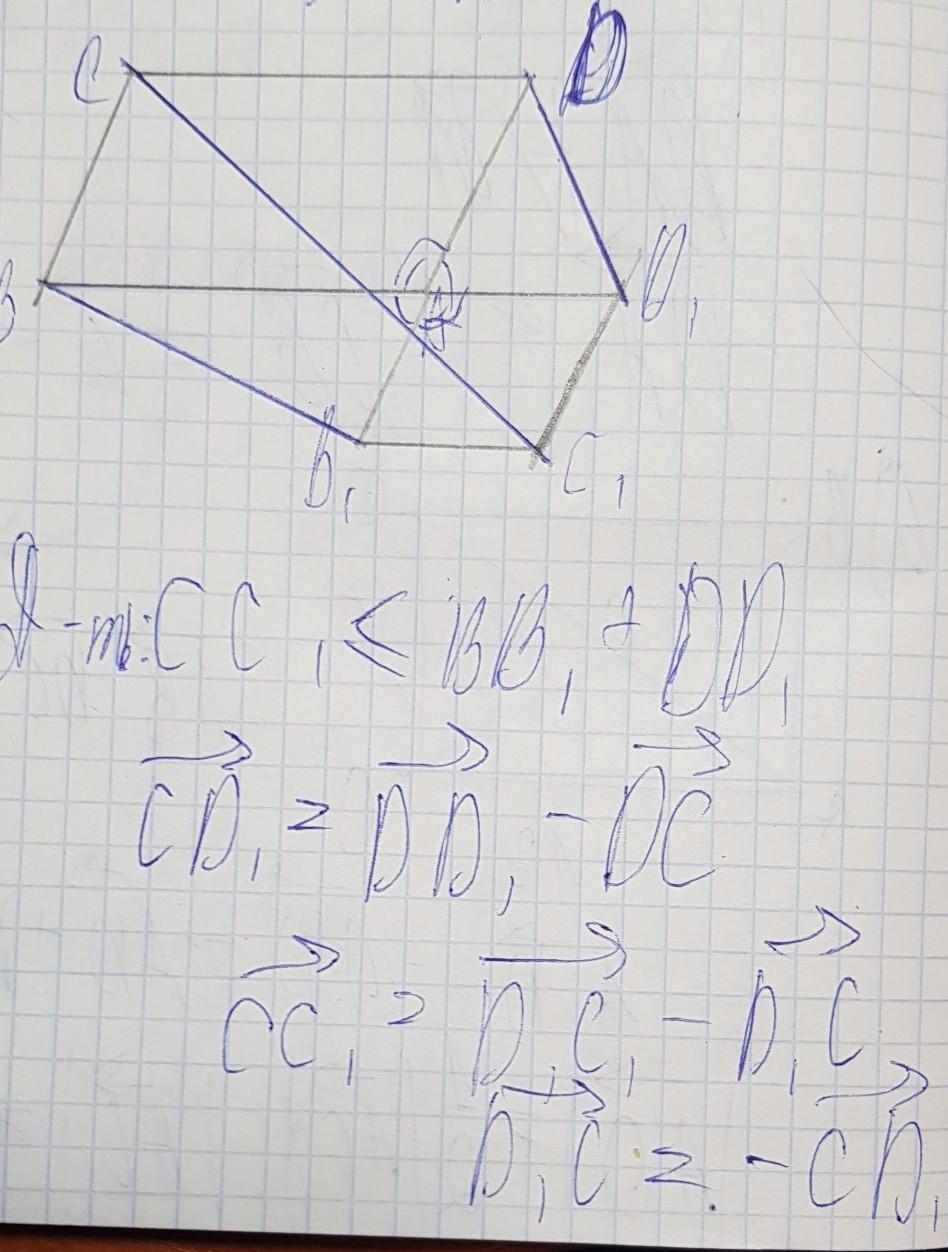 C D
B A D₁
B₁ C₁
Д-ть: CC₁ ≤ BB₁ + DD₁
→CD₁ = →DD₁ - →DC
→CC₁ = →D₁C₁ - →D₁C
→D₁C = - →CD₁